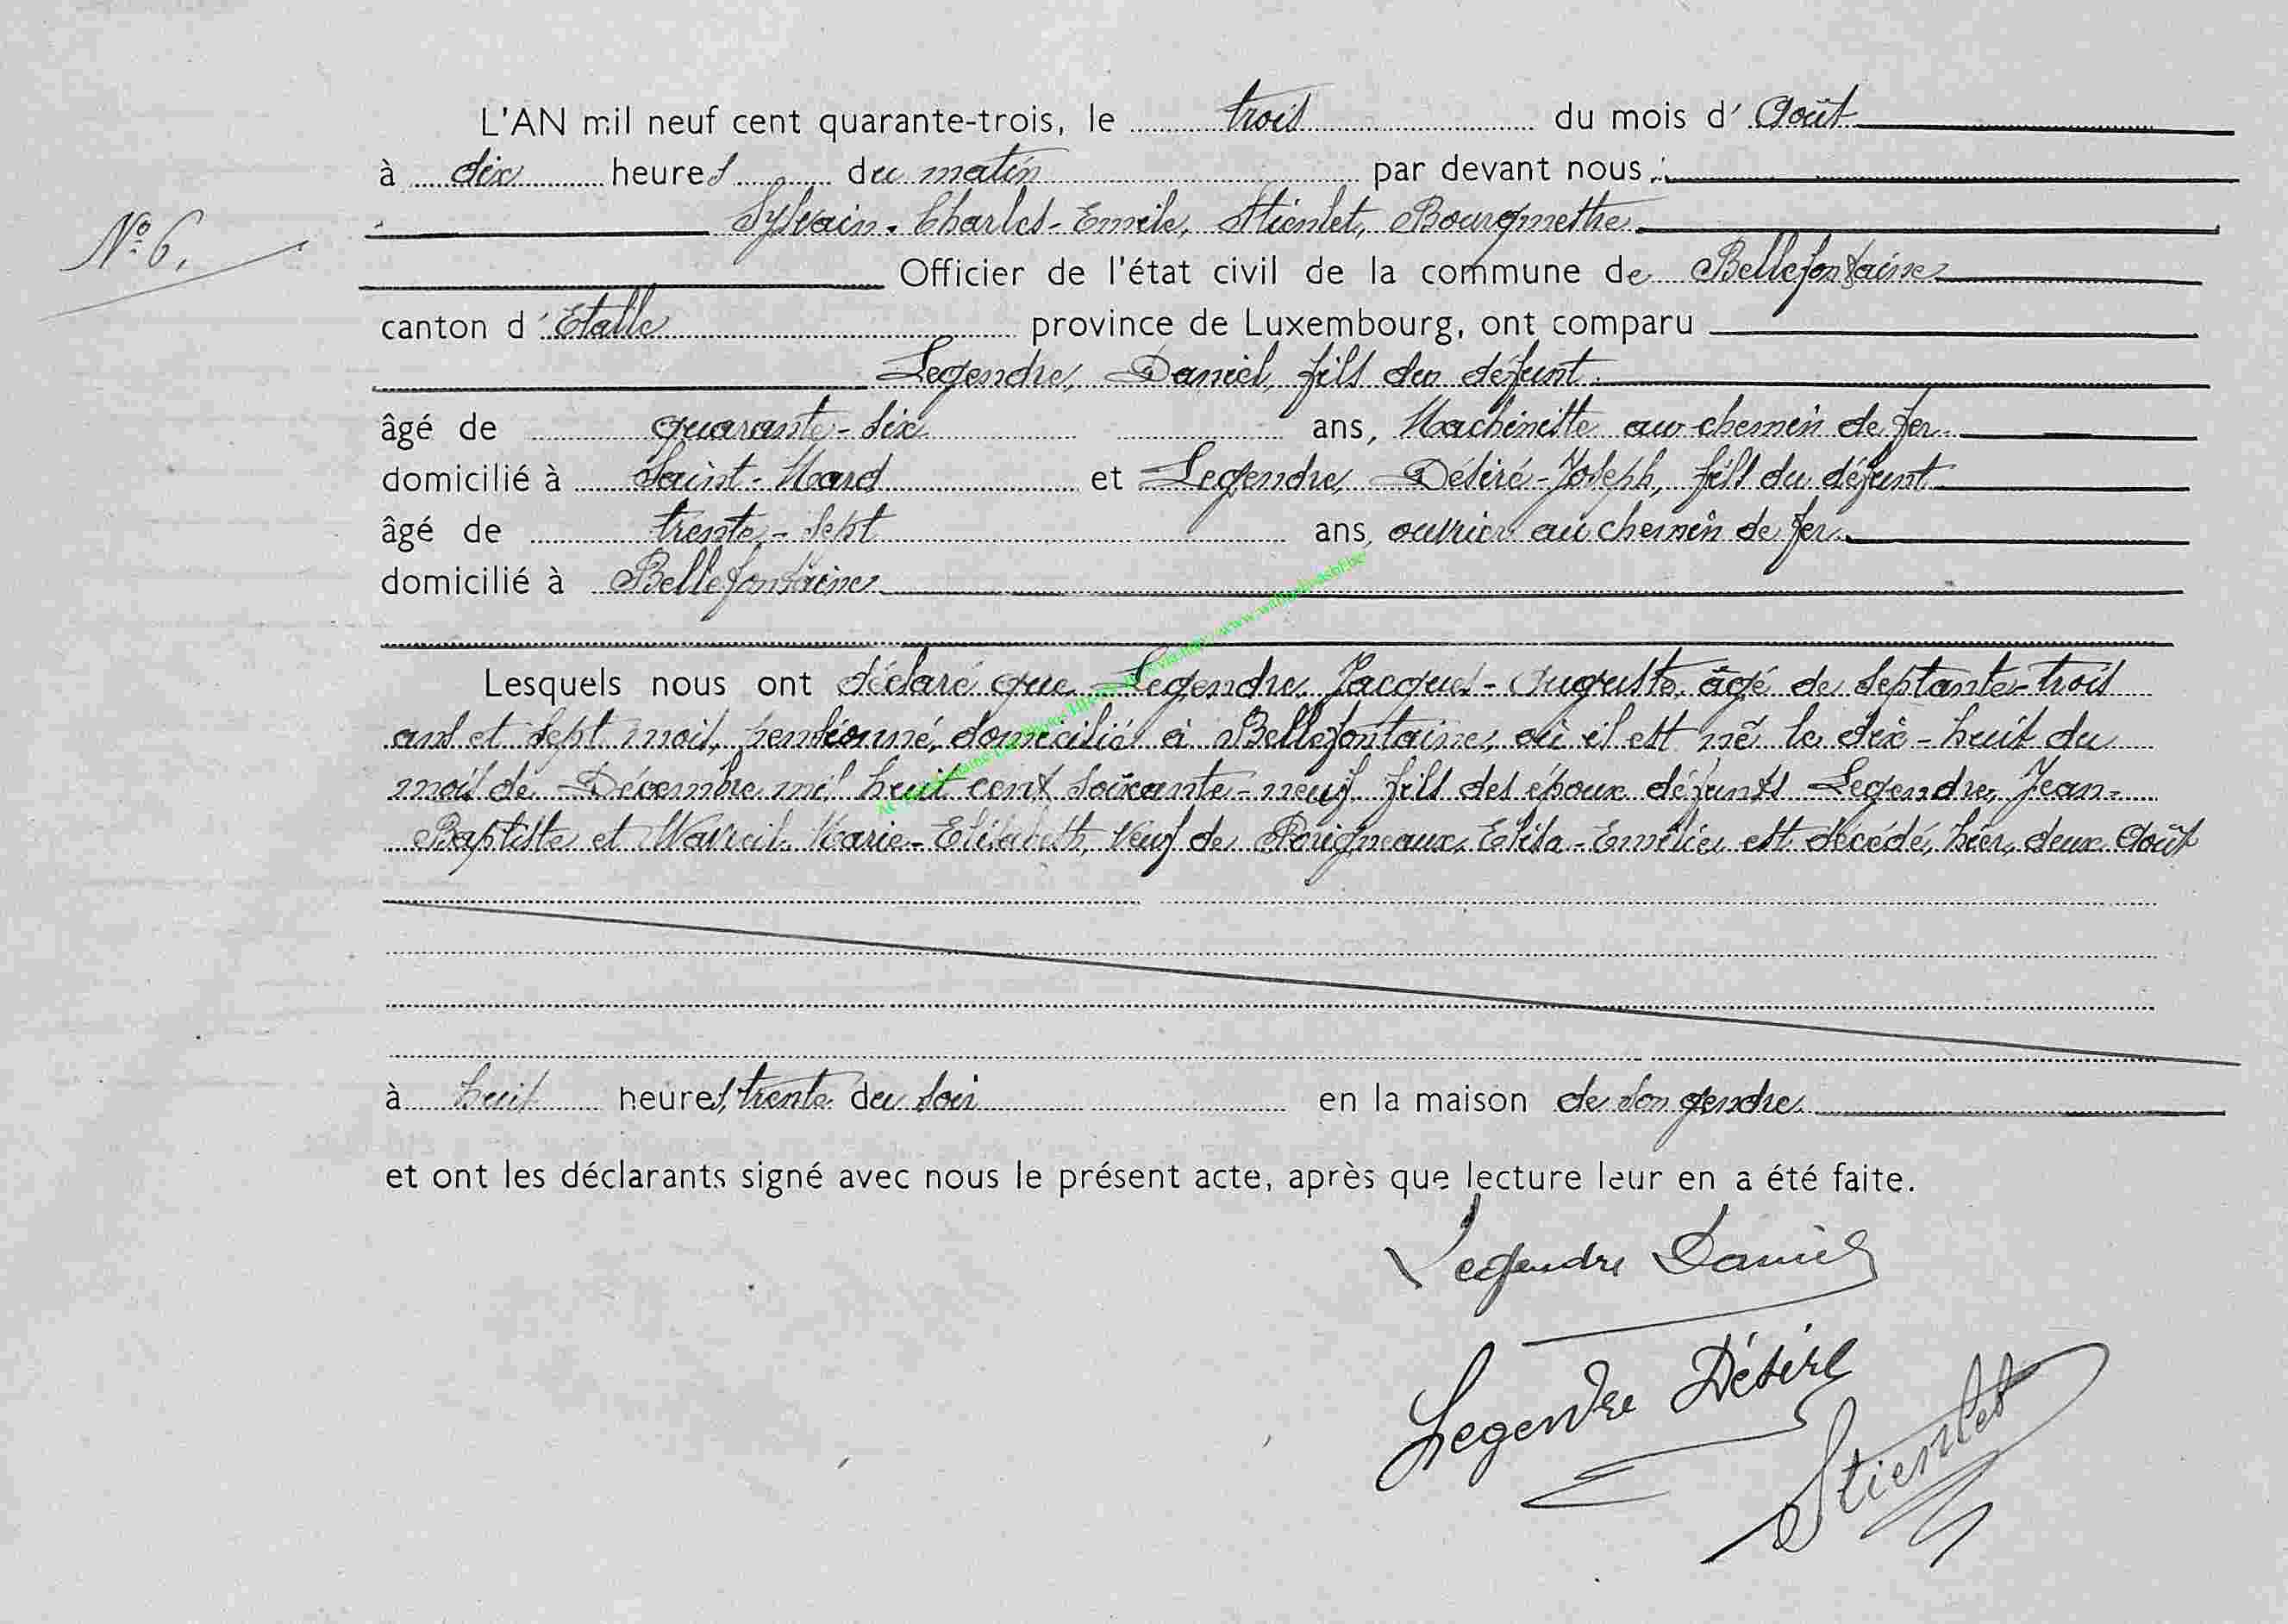 L'AN mil neuf cent quarante-trois, le trois du mois d' Août
à dix heures du matin par devant nous :
N° 6. Sylvain-Charles-Emile, Stienlet, Bourgmestre
Officier de l'état civil de la commune de Bellefontaine
canton d' Etalle province de Luxembourg, ont comparu
Legendre, Daniel, fils du défunt.
âgé de quarante-six ans, Machiniste au chemin de fer
domicilié à Saint-Mard et Legendre, Désiré-Joseph, fils du défunt
âgé de trente-sept ans, ouvrier au chemin de fer
domicilié à Bellefontaine
Lesquels nous ont déclaré que Legendre, Jacques-Auguste, âgé de septante-trois
ans et sept mois, pensionné, domicilié à Bellefontaine, où il est né le dix-huit du
mois de Décembre mil huit cent soixante-neuf, fils des époux défunts Legendre, Jean-
Baptiste et Marie-Elisabeth, veuf de Elisa-Emélie, est décédé, hier, deux Août
à huit heures, trente du soir en la maison de son gendre.
et ont les déclarants signé avec nous le présent acte, après que lecture leur en a été faite.
Legendre Daniel
Legendre Désiré
Stienlet